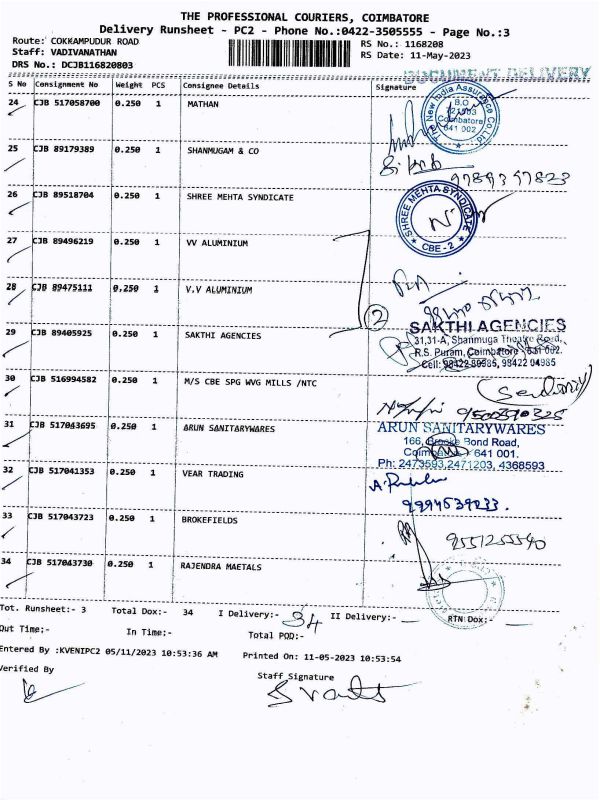 THE PROFESSIONAL COURIERS, COIMBATORE
Delivery Runsheet - PC2 - Phone No.:0422-3505555 - Page No.:3
Route: COKKAMPUDUR ROAD
Staff: VADIVANATHAN
DRS No.: DCJB116820803
RS No.: 1168208
RS Date: 11-May-2023
DOCUMENT DELIVERY
S No Consignment No Weight PCS Consignee Details Signature
24 CJB 517058700 0.250 1 MATHAN
The New India Assurance Co.Ltd
B.O
Coimbatore
641 002
25 CJB 89179389 0.250 1 SHANMUGAM & CO
9789357823
26 CJB 89518704 0.250 1 SHREE MEHTA SYNDICATE
SHREE MEHTA SYNDICATE
CBE-2
27 CJB 89496219 0.250 1 VV ALUMINIUM
28 CJB 89475111 0.250 1 V.V ALUMINIUM
2
29 CJB 89405925 0.250 1 SAKTHI AGENCIES
SAKTHI AGENCIES
31,31-A, Shanmuga Theatre Road,
R.S. Puram, Coimbatore - 641 002.
Cell: 98422 89985, 98422 04985
30 CJB 516994582 0.250 1 M/S CBE SPG WVG MILLS /NTC
31 CJB 517043695 0.250 1 ARUN SANITARYWARES
ARUN SANITARYWARES
166, Brooke Bond Road,
Coimbatore - 641 001.
Ph: 2473593,2471203, 4368593
32 CJB 517041353 0.250 1 VEAR TRADING
9994539033.
33 CJB 517043723 0.250 1 BROKEFIELDS
9551255590
34 CJB 517043730 0.250 1 RAJENDRA MAETALS
Tot. Runsheet:- 3 Total Dox:- 34 I Delivery:- 34 II Delivery:- RTN Dox:-
Out Time:- In Time:- Total POD:-
Entered By :KVENIPC2 05/11/2023 10:53:36 AM Printed On: 11-05-2023 10:53:54
Verified By
Staff Signature